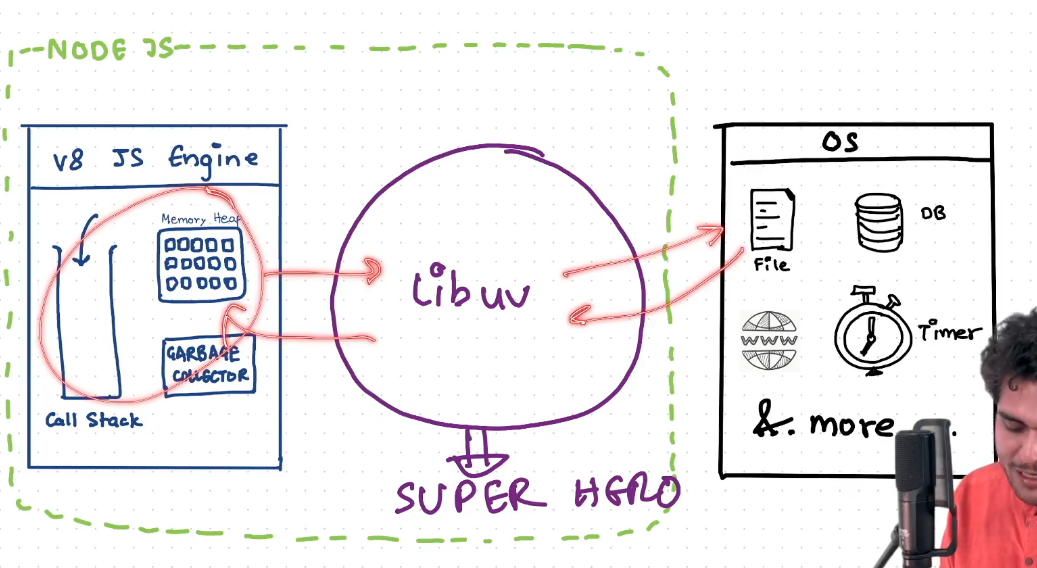 NODE JS
V8 JS Engine
Memory Heap
GARBAGE
COLLECTOR
Call Stack
Libuv
SUPER HERO
OS
File
DB
WWW
Timer
&. more